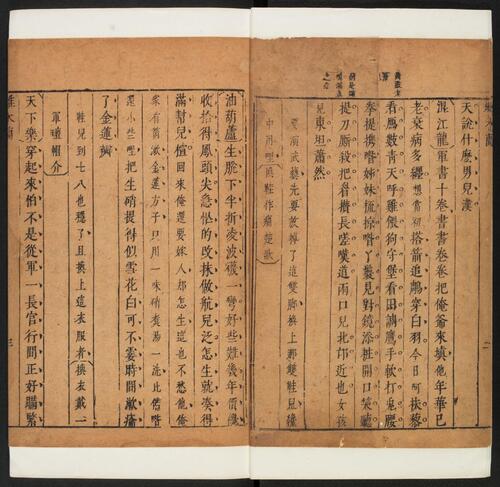 天說什麼男兒漢
混江龍軍書十卷書書卷卷把俺爺來填他年華已
老衰病多纏想當初搭箭追鵰穿白羽今日呵扶藜
看鴈數青天呼雞餵狗守堡看田調鷹手軟打兔腰
拳提攜咱姊妹梳掠咱丫鬟見對鏡添粧開口笑聽
提刀廝殺把眉攢長嗟嘆道兩口兒北邙近也女孩
兒東坦蕭然
要演武藝先要放掉了這雙脚換上那雙鞋兒纔
中用哩換鞋作痛楚狀
油葫蘆生脫下半折凌波襪一彎好些難幾年價纔
收拾得鳳頭尖急忙的改抹做航兒泛怎生就湊得
滿幫兒楦回來俺還要嫁人却怎生這也不愁他俺
家有箇漱金蓮方子只用一味硝煑湯一洗比偌咱
還小些哩把生硝提得似雪花白可不霎時間漱癟
了金蓮瓣
鞋兒到七八也穩了且換上這衣服者換衣戴一
軍氊帽介
天下樂穿起來怕不是從軍一長官行間正好瞞緊
三